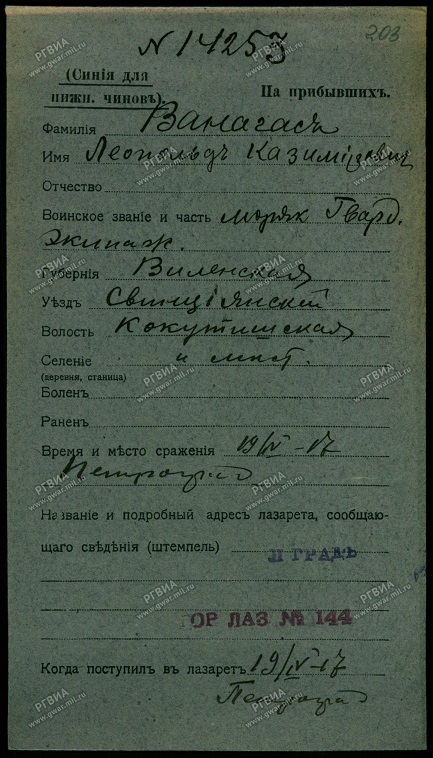 203
N 14253
(Синія для нижн. чиновъ)
На прибывшихъ.
Фамилія Ванагась
Имя Леопольдъ Казимірович
Отчество
Воинское званіе и часть моряк Гвард.
Экипаж.
Губернія Виленская
Уѣздъ Свенціянскій
Волость Кокутишская
Селеніе и мист.
(деревня, станица)
Боленъ
Раненъ
Время и мѣсто сраженія 19/IV-17
Петроград
Названіе и подробный адресъ лазарета, сообщаю-
щаго свѣдѣнія (штемпель)
П ГРАДЪ
ОР ЛАЗ № 144
Когда поступилъ въ лазаретъ 19/IV-17
Петроград
РГВИА
www.gwar.mil.ru